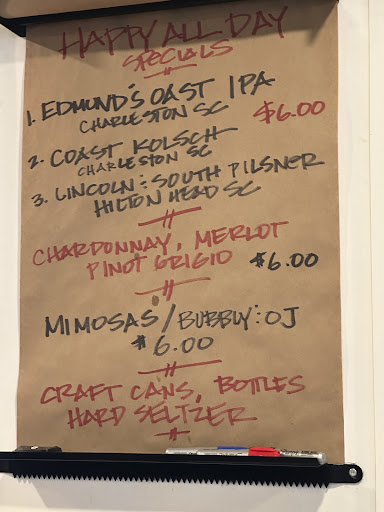 HAPPY ALL DAY
SPECIALS
1. EDMUND'S OAST IPA
CHARLESTON SC
$6.00
2. COAST KOLSCH
CHARLESTON SC
3. LINCOLN : SOUTH PILSNER
HILTON HEAD SC
CHARDONNAY, MERLOT
PINOT GRIGIO $6.00
MIMOSAS/BUBBLY : OJ
$6.00
CRAFT CANS, BOTTLES
HARD SELTZER